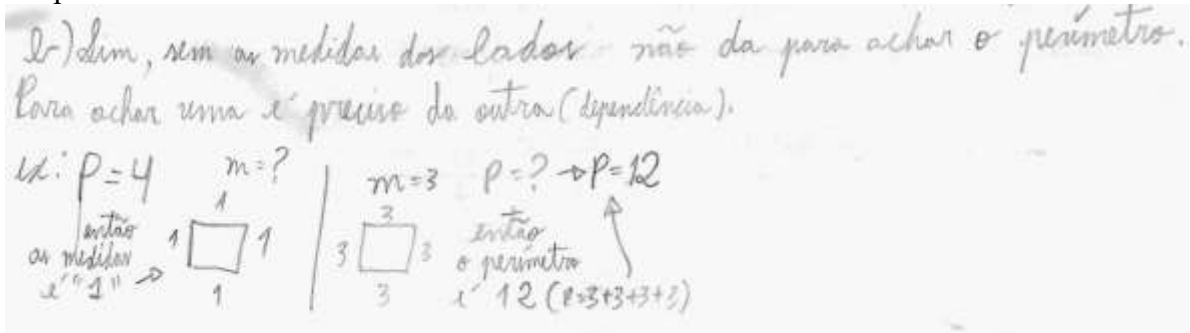 b-) Sim, sem as medidas dos lados não da para achar o perímetro.
Para achar uma é preciso da outra (dependência).
ex: P=4 m=?
1
1 1
1
então
as medidas
é "1" →
m=3 P=? → P=12
3
3 3
3
então
o perímetro
é 12 (P=3+3+3+3)